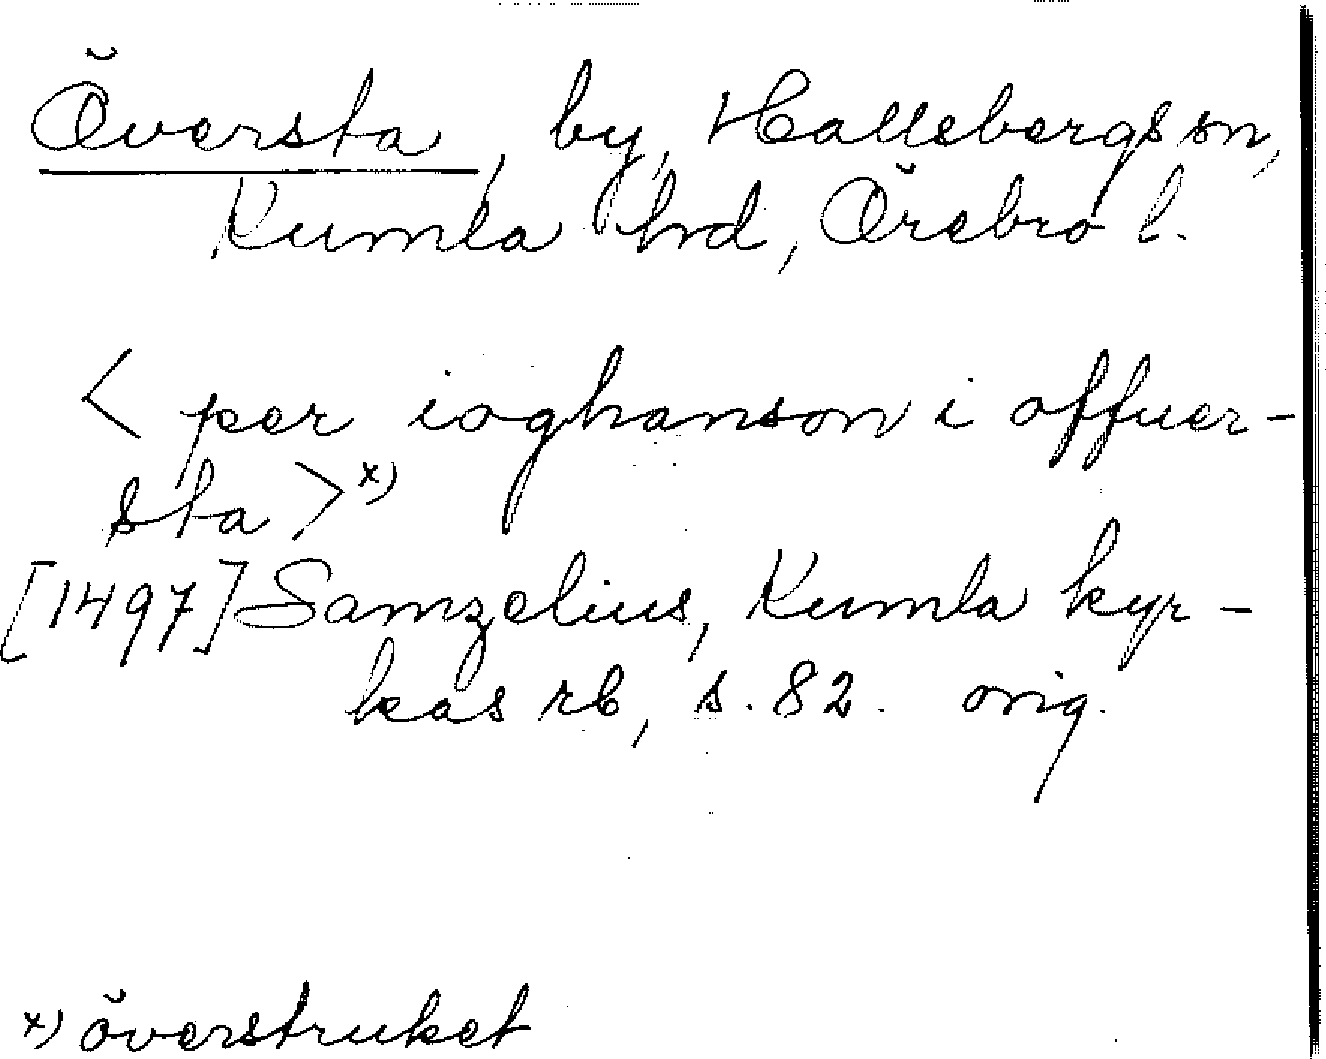 Översta, by, Hallebergs sn,
Kumla hd, Örebro l.
< per ioghanson i offuer-
sta > x)
[1497] Samzelius, Kumla kyr-
kas rb, s. 82. orig.
x) överstruket